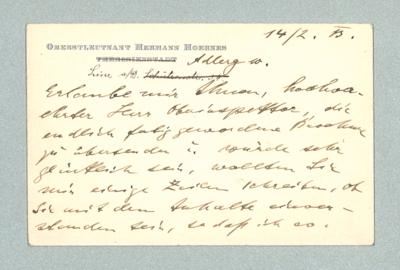 14/2. 13.
OBERSTLEUTNANT HERMANN HOERNES
THERESIENSTADT Adlerg 10.
Linz a/D.
Erlaube mir Ihnen, hochver-
ehrter Herr Oberinspektor, die
endlich fertig gewordene Broschüre
zu übersenden u. würde sehr
glücklich sein, wollten Sie
mir einige Zeilen schreiben, ob
Sie mit dem Inhalte einver-
standen sein, so daß ich